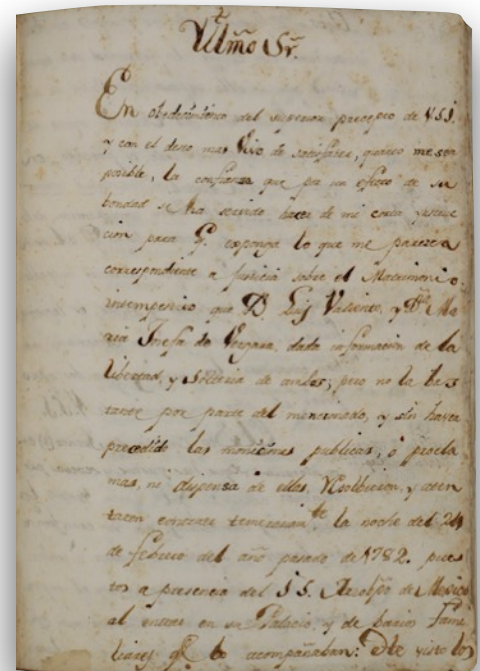 Yltmo Sr.
En obedecimiento del superior precepto de V.S.I.
y con el deseo mas vivo de satisfacer, quanto me sea
posible, la confianza que por un efecto de su
bondad se ha servido hacer de mi corta
cion para q. exponga lo que me parezca
correspondiente a justicia sobre el Matrimonio
intempestivo que Dn. Luis Valiente, y Da. Ma
ria Josefa de Vergara, dada informacion de la
libertad, y solteria de ambos; pero no la bas
tante por parte del mencionado, y sin haver
precedido las moniciones publicas, o procla
mas, ni dispensa de ellas, resolvieron, y aten
taron contraer temerariamte. la noche del 24
de febrero del año pasado de 1782. pues
tos a presencia del S.S. Arzobpo de Mexico
al entrar en su Palacio, y de barios fami
liares q. lo acompañaban: He visto los